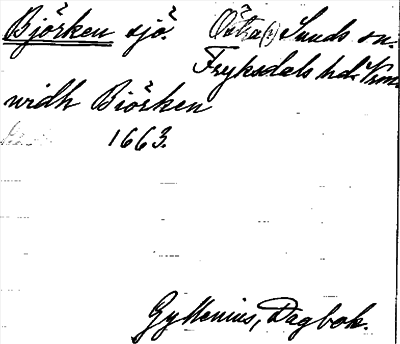 Björken sjö. Östra (?) Sunds sn.
Fryksdals hd. Vrml
widh Biörken
1663.
Gyllenius, Dagbok.